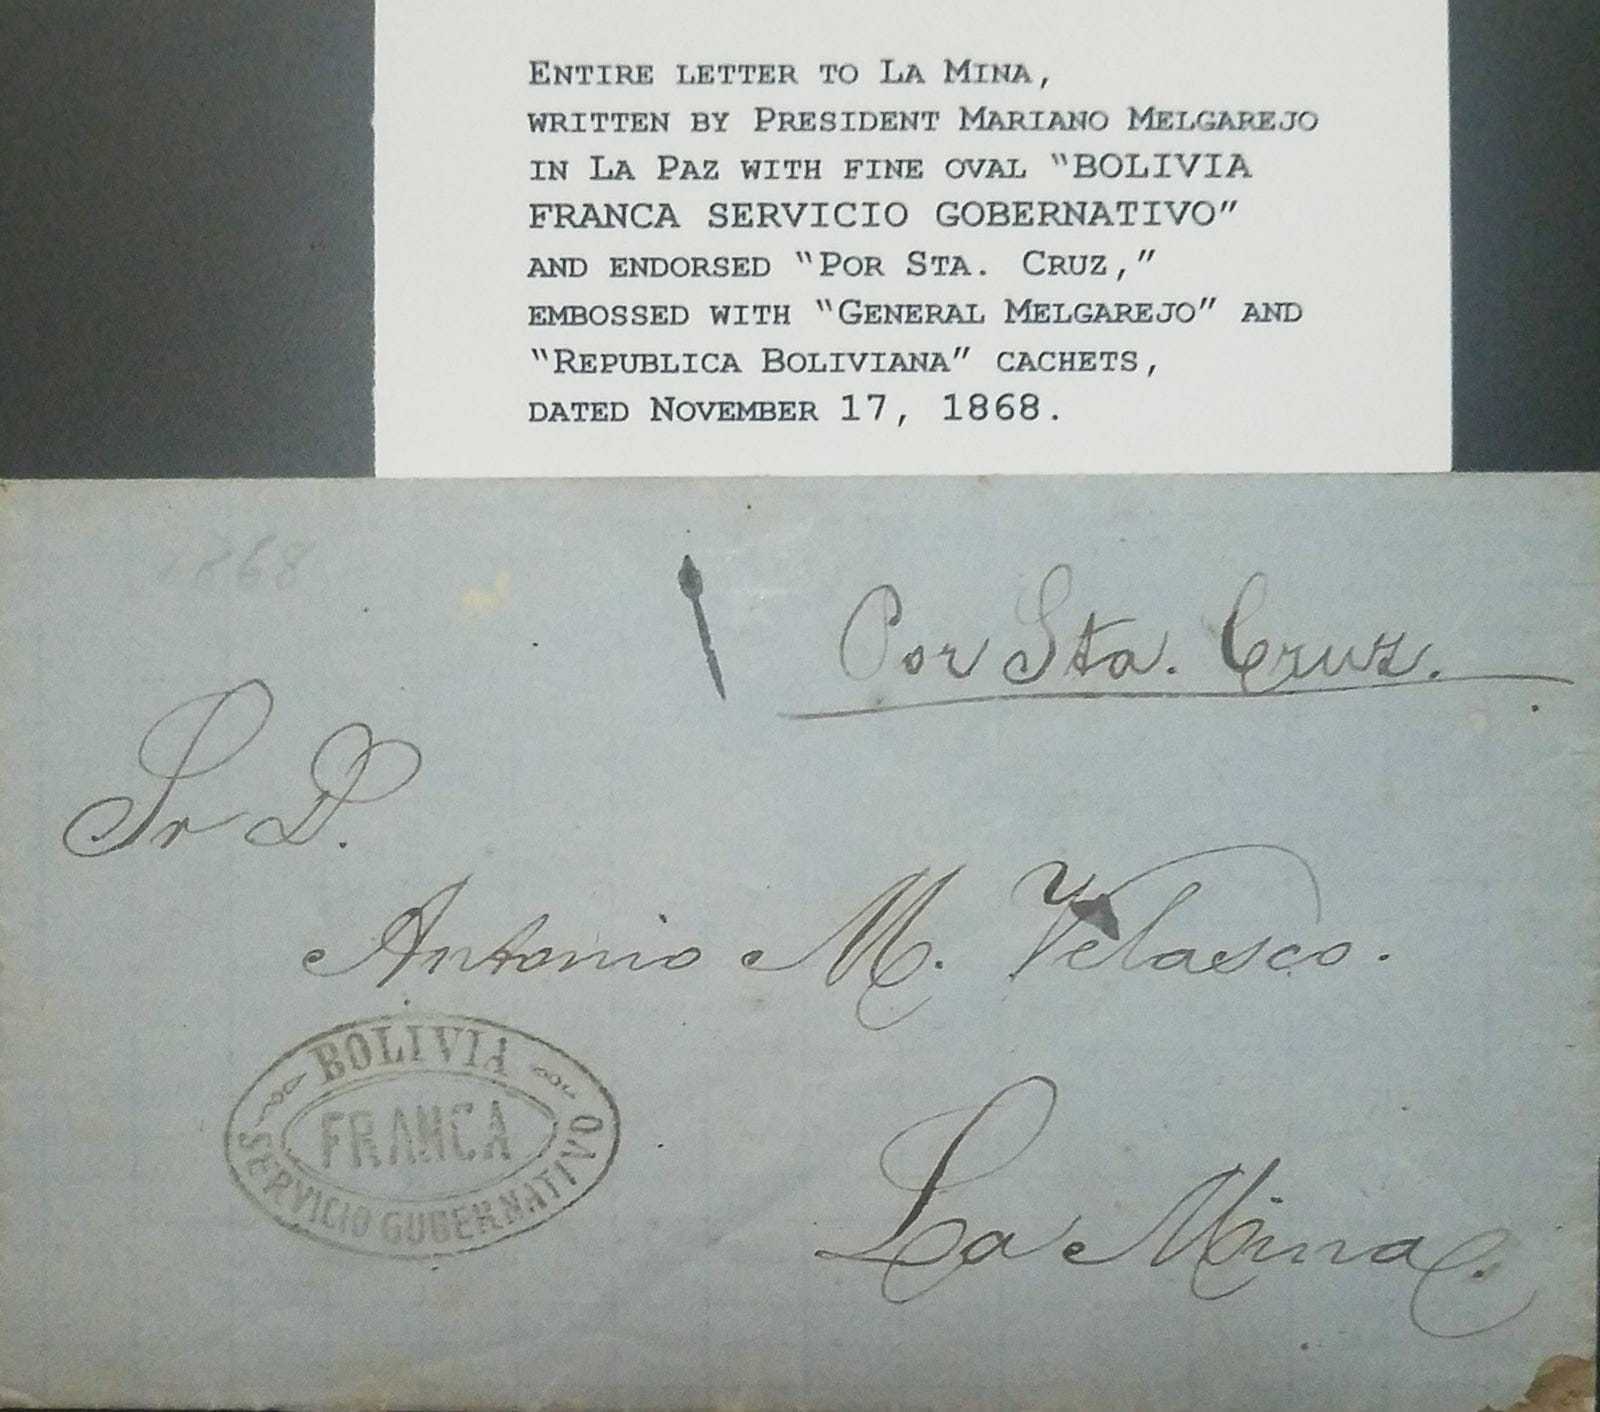 ENTIRE LETTER TO LA MINA,
WRITTEN BY PRESIDENT MARIANO MELGAREJO
IN LA PAZ WITH FINE OVAL "BOLIVIA
FRANCA SERVICIO GOBERNATIVO"
AND ENDORSED "POR STA. CRUZ,"
EMBOSSED WITH "GENERAL MELGAREJO" AND
"REPUBLICA BOLIVIANA" CACHETS,
DATED NOVEMBER 17, 1868.
1868
Por Sta. Cruz.
Sr D.
Antonio M. Velasco.
BOLIVIA
FRANCA
SERVICIO GUBERNATIVO
La Mina.